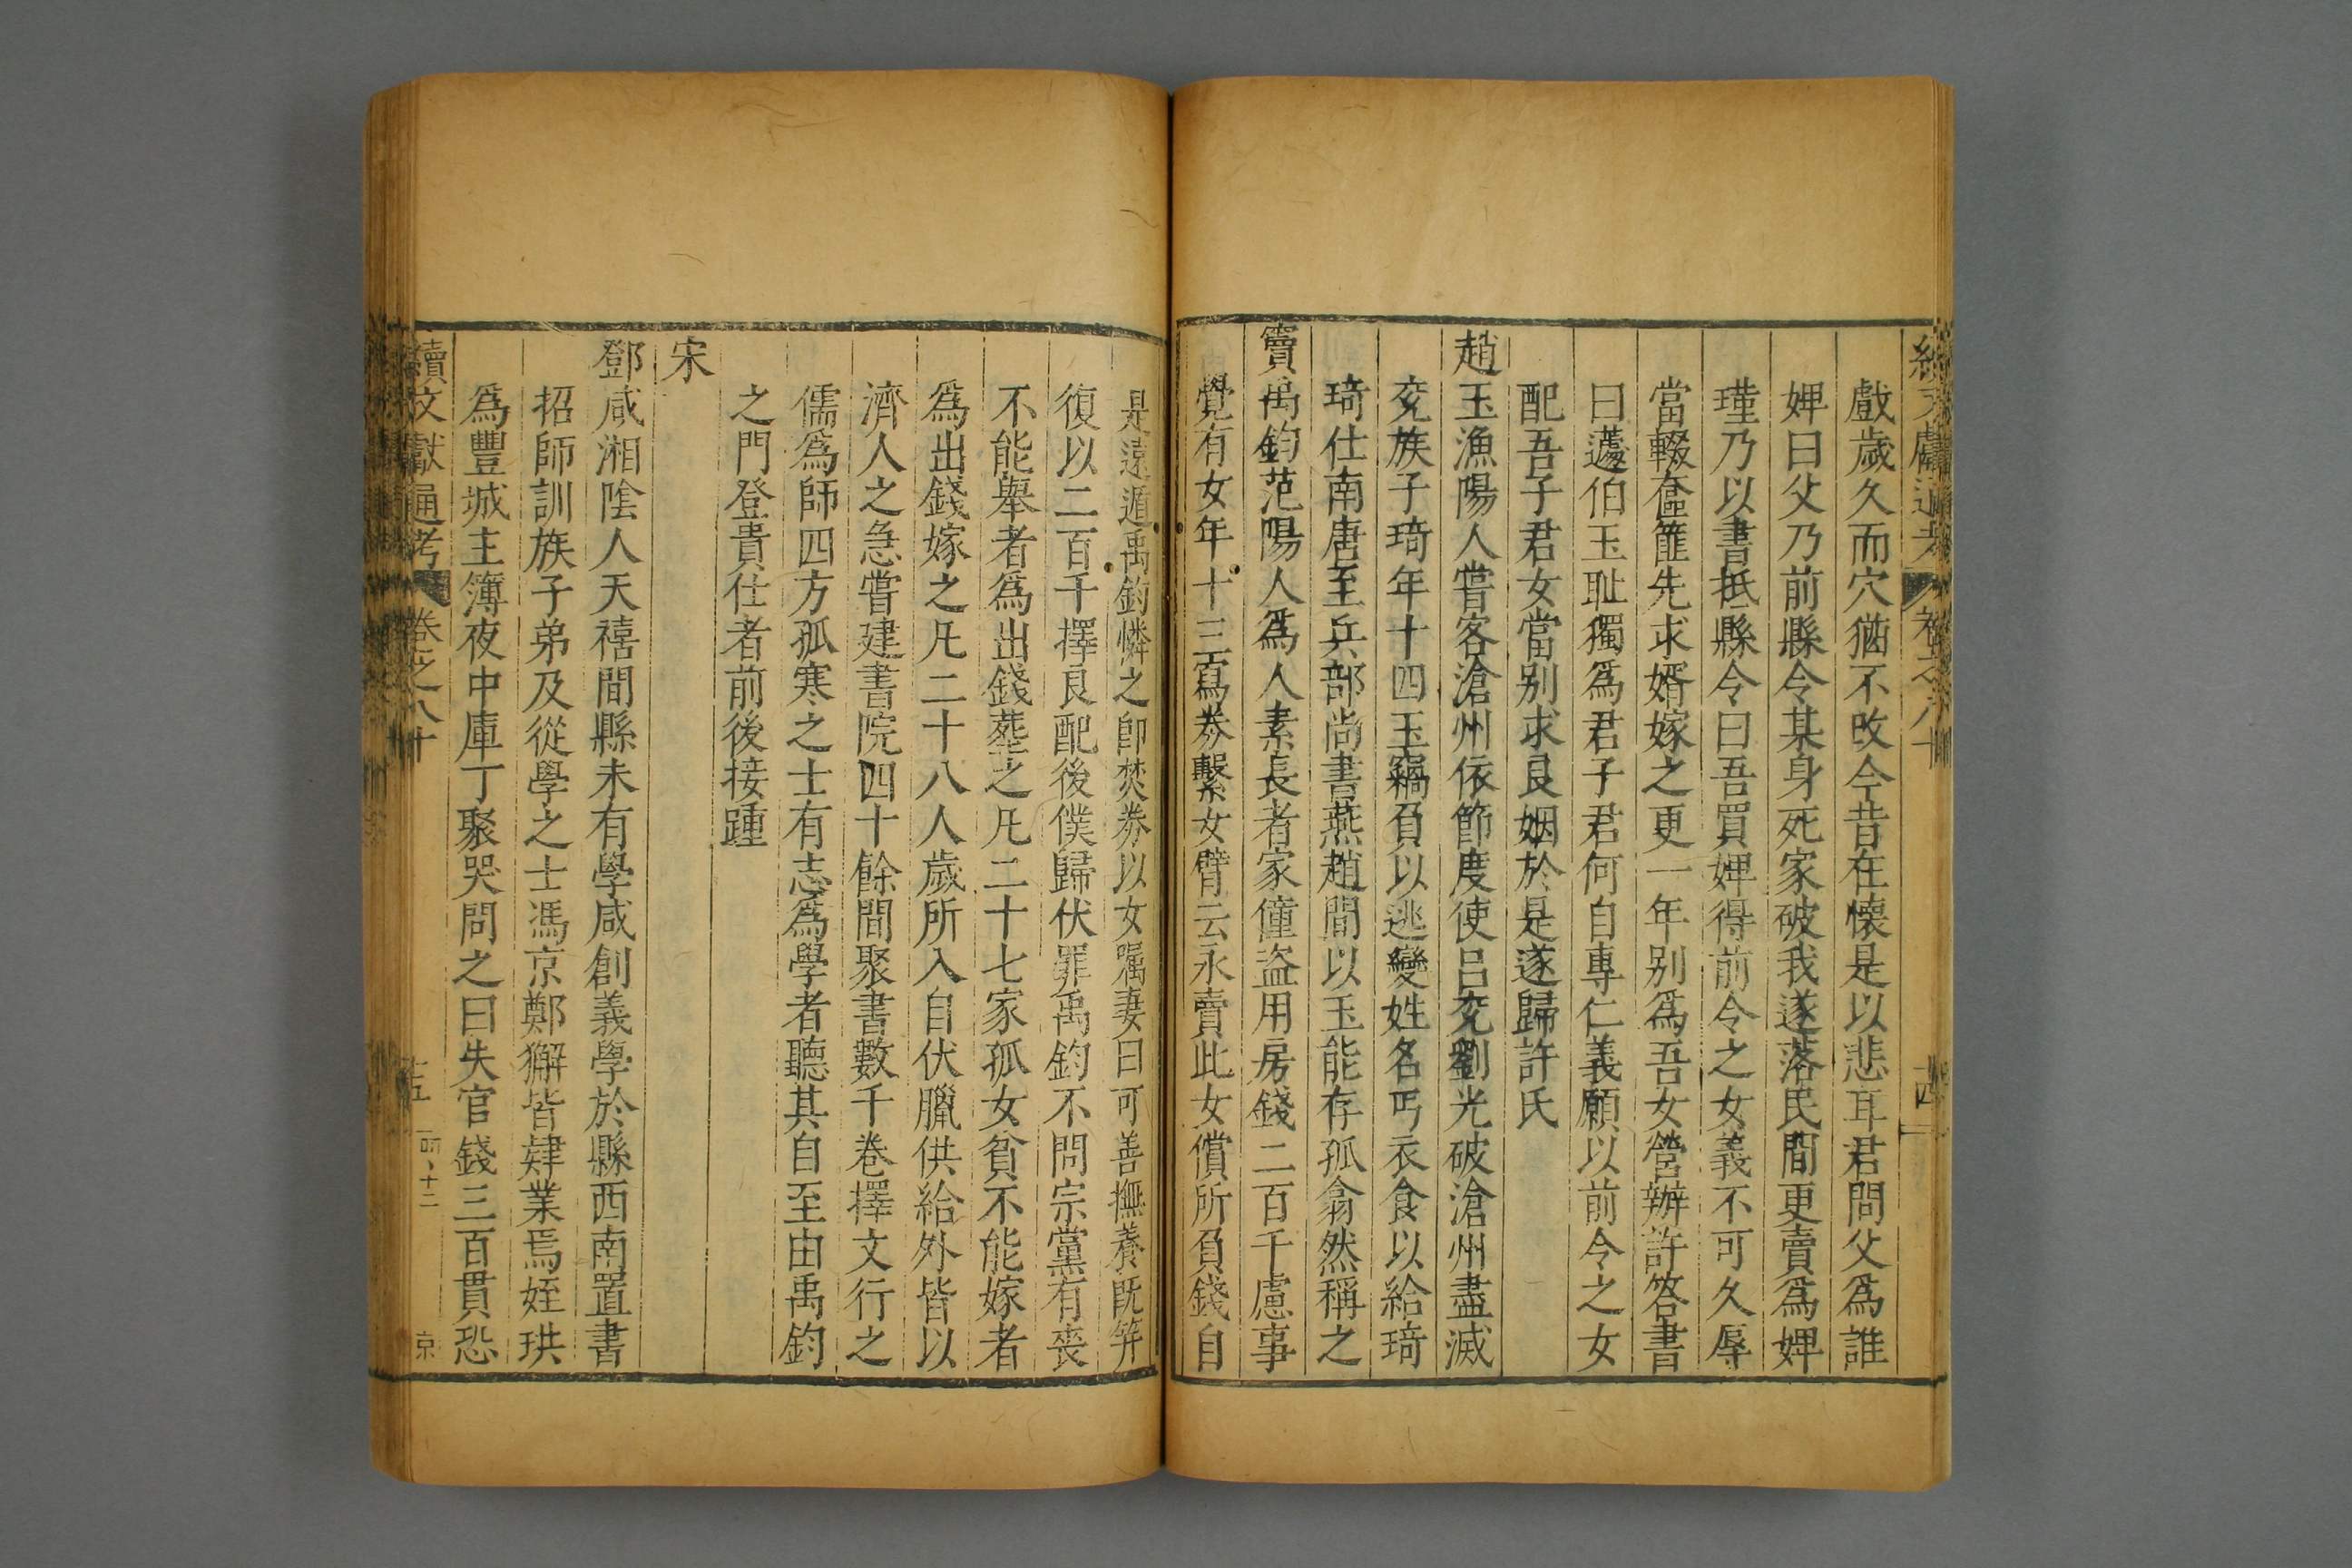 續文獻通考 卷之八十 十四
戲歲久而穴猶不改今昔在懷是以悲耳君問父爲誰
婢曰父乃前縣令某身死家破我遂落民間更賣爲婢
瑾乃以書抵縣令曰吾買婢得前令之女義不可久辱
當輟奩篚先求婿嫁之更一年别爲吾女營辦許答書
曰蘧伯玉耻獨爲君子君何自專仁義願以前令之女
配吾子君女當别求良姻於是遂歸許氏
趙玉漁陽人嘗客滄州依節度使呂兖劉光破滄州盡滅
兖族子琦年十四玉竊負以逃變姓名丐衣食以給琦
琦仕南唐至兵部尚書燕趙間以玉能存孤翕然稱之
竇禹鈞范陽人爲人素長者家僮盜用房錢二百千慮事
覺有女年十三寫券繫女臂云永賣此女償所負錢自
是遠遁禹鈞憐之卽焚券以女囑妻曰可善撫養既筓
復以二百千擇良配後僕歸伏罪禹鈞不問宗黨有喪
不能舉者爲出錢塟之凡二十七家孤女貧不能嫁者
爲出錢嫁之凡二十八人歲所入自伏臘供給外皆以
濟人之急嘗建書院四十餘間聚書數千卷擇文行之
儒爲師四方孤寒之士有志爲學者聽其自至由禹鈞
之門登貴仕者前後接踵
宋
鄧咸湘陰人天禧間縣未有學咸創義學於縣西南置書
招師訓族子弟及從學之士馮京鄭獬皆肄業焉姪珙
爲豐城主簿夜中庫丁聚哭問之曰失官錢三百貫恐
續文獻通考 卷之八十 十五 十二 京